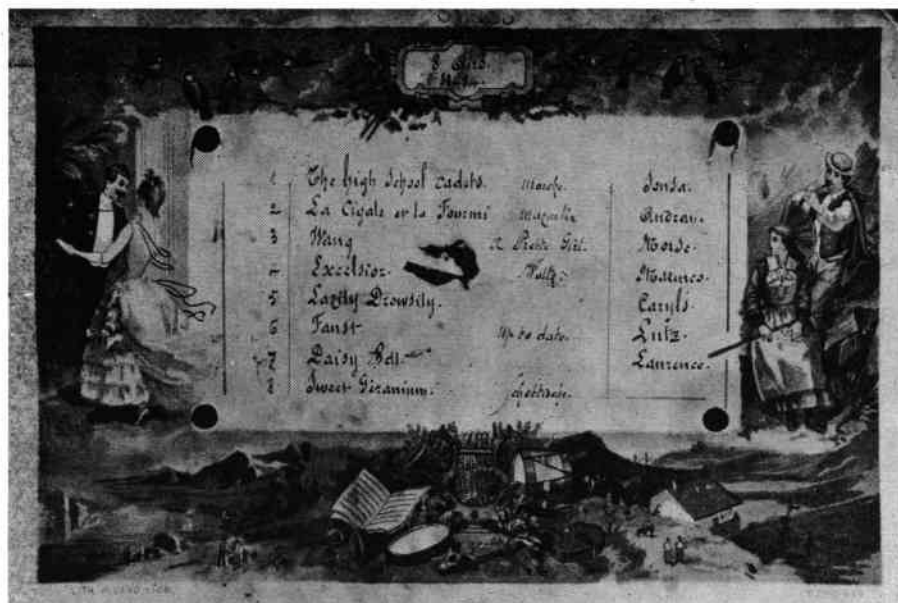 8 Airs
1 The high School cadets. March. Sousa.
2 La Cigale et la Fourmi Mazurka Audran.
3 Wang A Pretty Girl. Morse.
4 Excelsior. Waltz. Marenco.
5 Lazily Drowsily. Caryll
6 Faust Up to date. Lutz.
7 Daisy Bell Laurence.
8 Sweet Geranium. Schottisch.